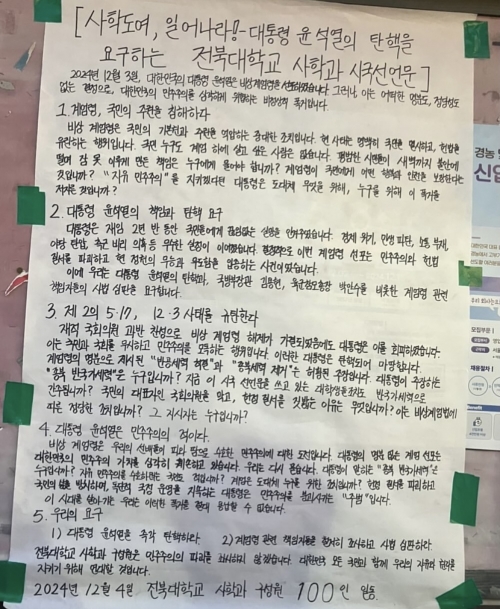 [사학도여, 일어나라!- 대통령 윤석열의 탄핵을
요구하는 전북대학교 사학과 시국선언문]
2024년 12월 3일, 대한민국의 대통령 윤석열은 비상계엄령을 선포하였습니다. 그러나, 이는 어떠한 명분도, 정당성도
없는 결정으로, 대한민국의 민주주의를 심각하게 위협하는 비상식적 폭거입니다.
1. 계엄령, 국민의 주권을 침해하다
비상 계엄령은 국민의 기본권과 주권을 억압하는 중대한 조치입니다. 현 사태는 명백히 국민을 멸시하고, 헌법을
유린하는 행위입니다. 국민 누구도 계엄 하에 살고 싶은 사람은 없습니다. 평범한 시민들이 새벽까지 불안에
떨며 잠 못 이루게 만든 책임은 누구에게 물어야 합니까? 계엄령이 국민에게 어떤 행복과 안전을 보장한다는
것입니까? "자유 민주주의"를 지키겠다던 대통령은 도대체 무엇을 위해, 누구를 위해 이 폭거를
저지른 것입니까?
2. 대통령 윤석열의 책임과 탄핵 요구
대통령은 재임 2년 반 동안 국민들에게 끊임없는 실망을 안겨주었습니다. 경제 위기, 민생 파탄, 노동, 부채,
야당 탄압, 측근 비리 의혹 등 무수한 실정이 이어졌습니다. 결정적으로 이번 계엄령 선포는 민주주의와 헌법
질서를 파괴하고 현 정권의 무능과 무도함을 입증하는 사건이었습니다.
이에 우리는 대통령 윤석열의 탄핵과, 국방부장관 김용현, 육군참모총장 박안수를 비롯한 계엄령 관련
책임자들의 사법 심판을 요구합니다.
3. 제 2의 5·17, 12·3 사태를 규탄한다
재적 국회의원 과반 찬성으로 비상 계엄령 해제가 가결되었음에도 대통령은 이를 회피하였습니다.
이는 국회를 무시하고 민주주의를 모욕하는 행위입니다. 이러한 대통령은 탄핵되어 마땅합니다.
계엄령의 명분으로 제시된 "반국가세력 척결"과 "종북세력 제거"는 허황된 주장입니다. 대통령이 주장하는
"종북 반국가세력"은 누구입니까? 지금 이 시국 선언문을 쓰고 있는 대학생들조차도 반국가세력으로
간주됩니까? 국민의 대표자인 국회의원을 막고, 헌정 질서를 짓밟는 이유는 무엇입니까? 이는 비상계엄법에
따른 정당한 조치입니까? 그 지시자는 누구입니까?
4. 대통령 윤석열은 민주주의의 적이다.
비상 계엄령은 우리의 선배들이 피와 땀으로 수호한 민주주의에 대한 도전입니다. 대통령의 명목 없는 계엄 선포는
대한민국의 민주주의 가치를 심각히 훼손하고 있습니다. 우리는 다시 묻습니다. 대통령이 말하는 "종북 반국가세력"은
누구입니까? 자유 민주주의를 수호하려는 국민들이 적입니까? 계엄은 도대체 누구를 위한 것입니까? 헌정 질서를 파괴하고
국민의 입을 막으며, 독단적 국정 운영을 지속하는 대통령은 민주주의를 붕괴시키는 "주범"입니다.
이 시대를 살아가는 우리는 이러한 폭거를 결코 용납할 수 없습니다.
5. 우리의 요구
1) 대통령 윤석열을 즉각 탄핵하라. 2) 계엄령 관련 책임자들을 철저히 조사하고 사법 심판하라.
전북대학교 사학과 구성원은 민주주의의 파괴를 좌시하지 않겠습니다. 대한민국 모든 국민이 함께 우리의 자유와 헌법을
지키기 위해 연대할 것입니다.
2024년 12월 4일 전북대학교 사학과 구성원 100인 일동
경농
신입
모집부문
채용절차